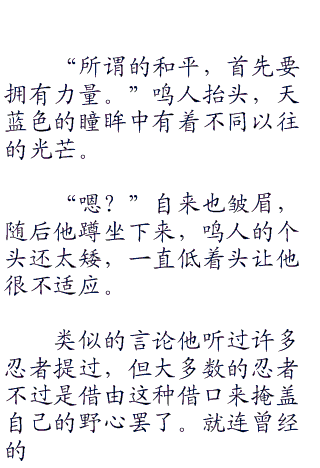 “所谓的和平，首先要
拥有力量。”鸣人抬头，天
蓝色的瞳眸中有着不同以往
的光芒。
“嗯？”自来也皱眉，
随后他蹲坐下来，鸣人的个
头还太矮，一直低着头让他
很不适应。
类似的言论他听过许多
忍者提过，但大多数的忍者
不过是借由这种借口来掩盖
自己的野心罢了。就连曾经
的